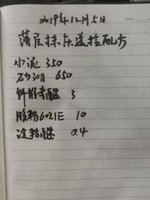 2019年12月5日
薄层抹灰送检配方
水泥 350
石砂 650
纤维素醚 3
胶粉6021E 10
淀粉醚 0.4